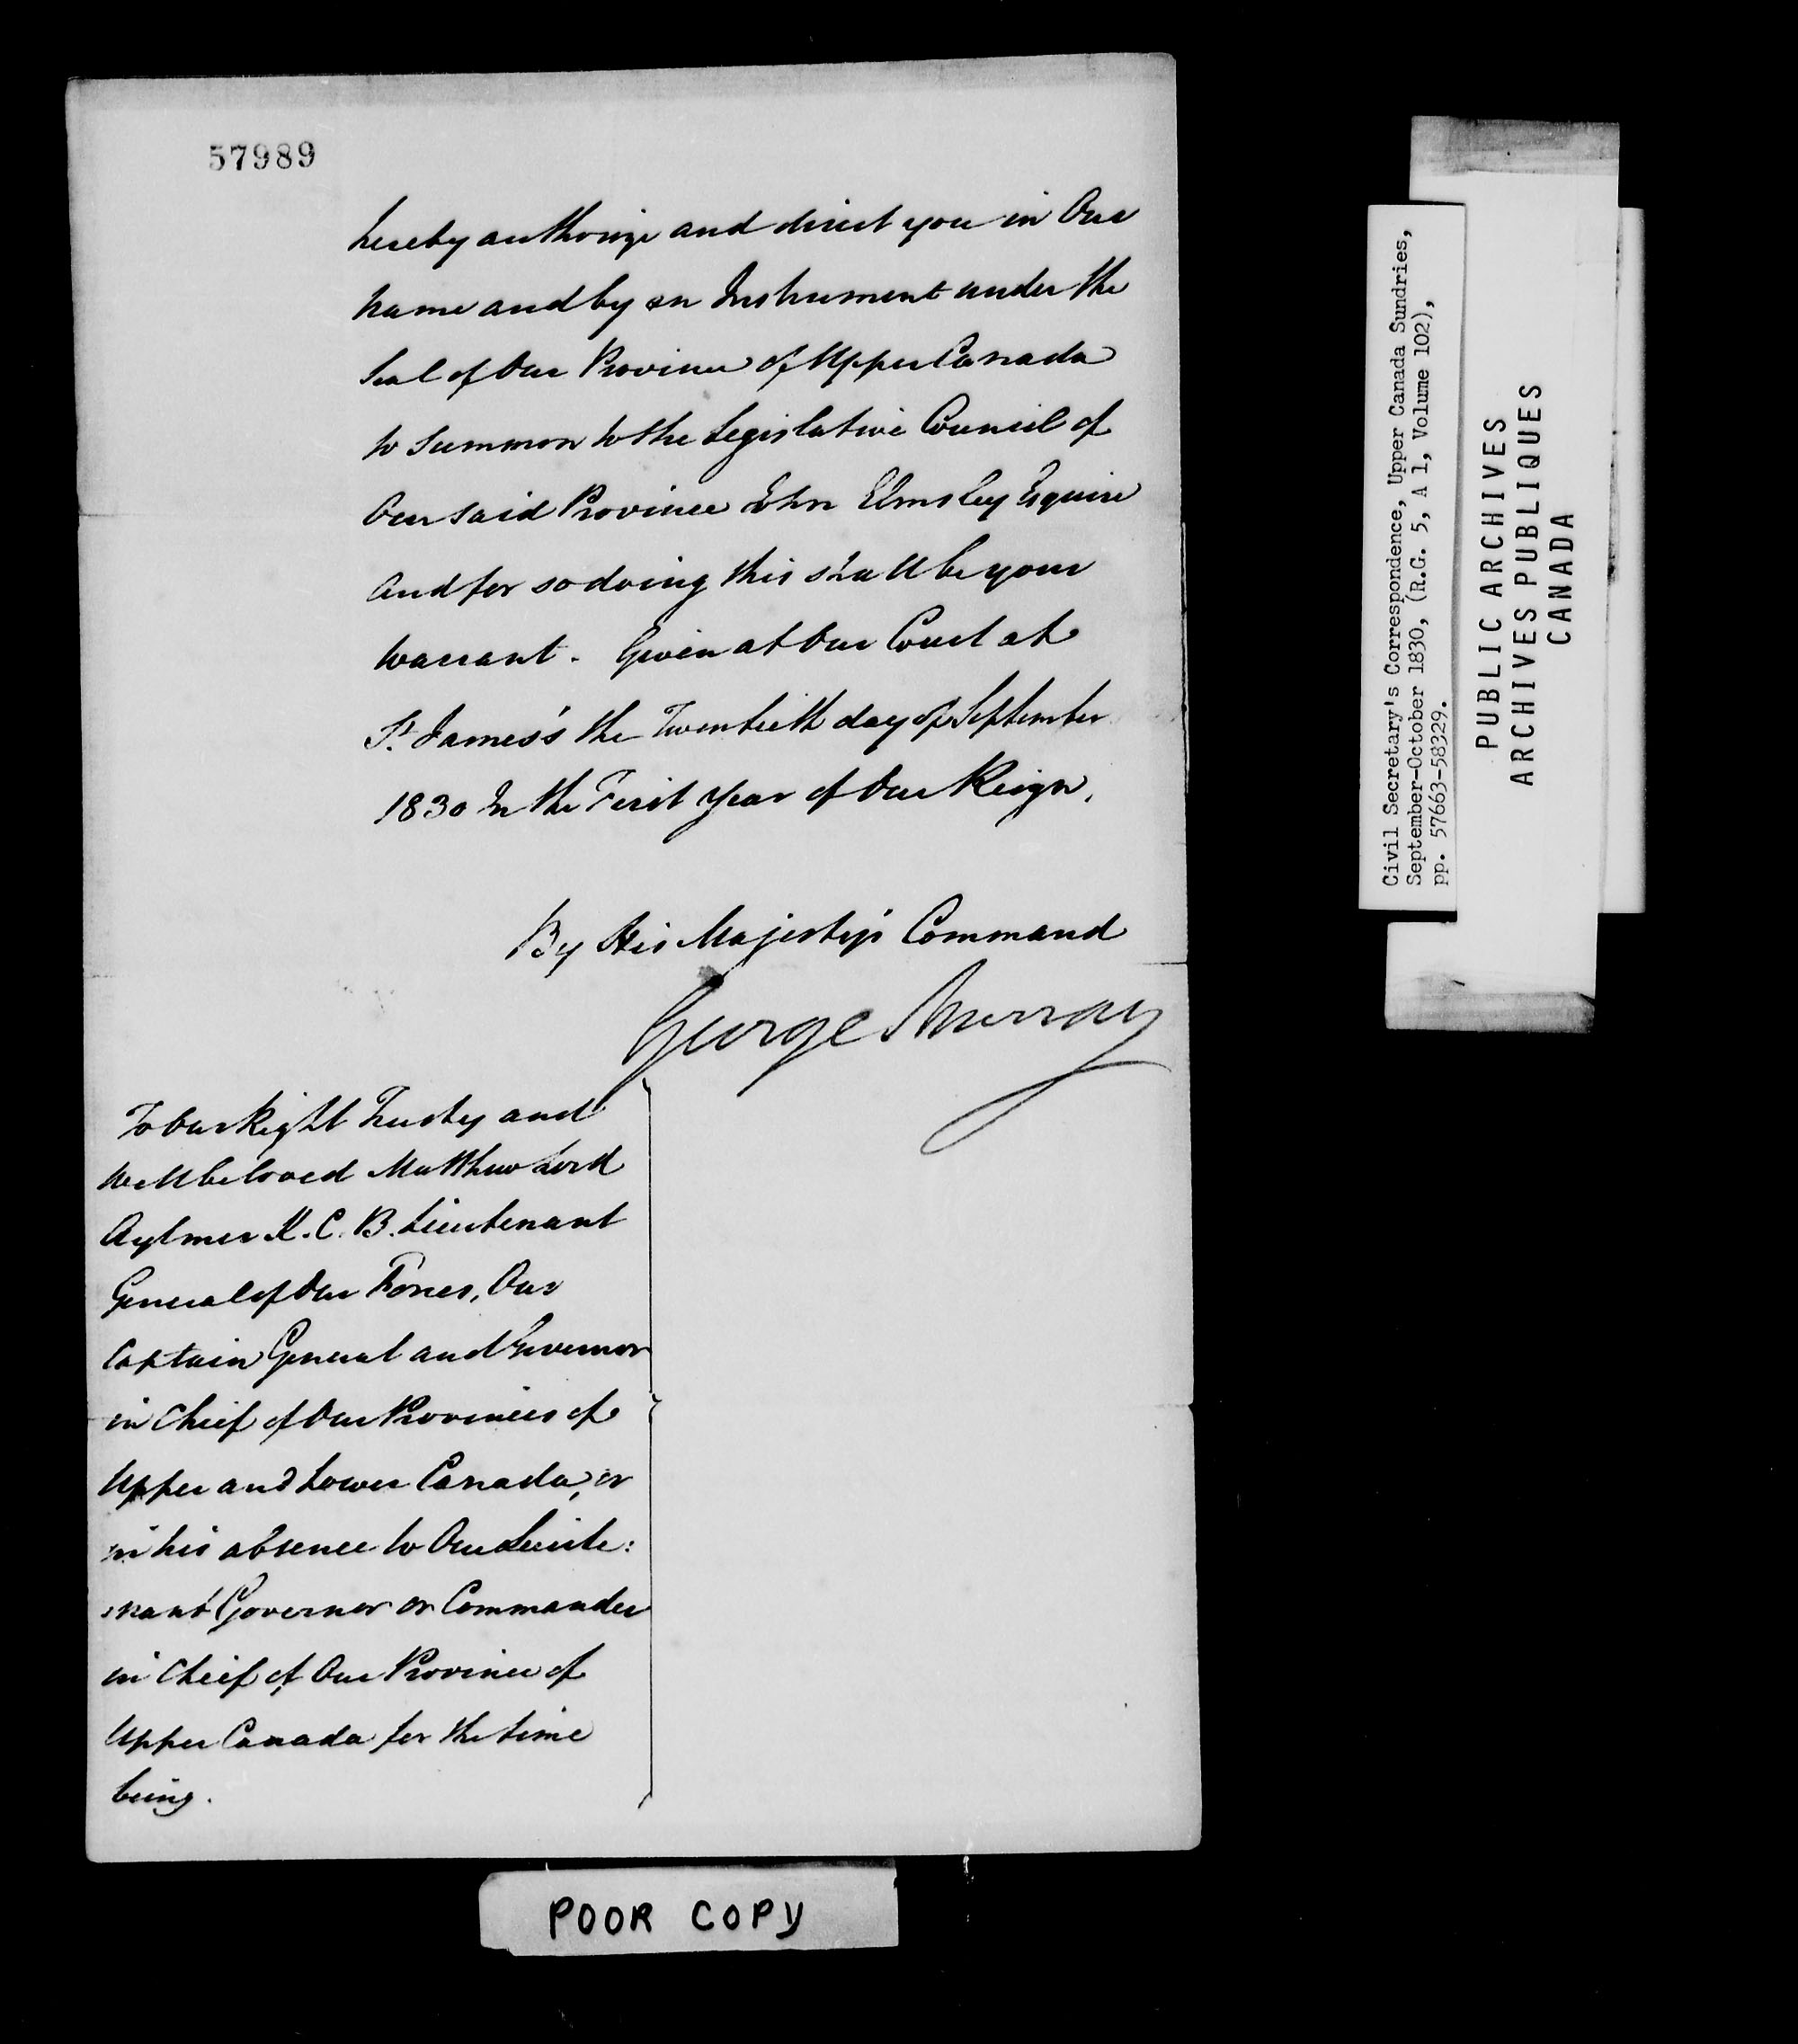 57989
hereby authorize and direct you in Our
name and by an Instrument under the
Seal of Our Province of Upper Canada
to summon to the Legislative Council of
Our said Province John Elmsley Esquire
And for so doing this shall be your
Warrant. Given at Our Court at
St. James's the Twentieth day of September
1830 In the First Year of Our Reign.
By His Majesty's Command
George Murray
To Our Right Trusty and
Wellbeloved Matthew Lord
Aylmer K.C.B. Lieutenant
General of Our Forces, Our
Captain General and Governor
in Chief of Our Provinces of
Upper and Lower Canada, or
in his absence to Our Lieute:
:nant Governor or Commander
in Chief of Our Province of
Upper Canada for the time
being.
Civil Secretary's Correspondence, Upper Canada Sundries,
September-October 1830, (R.G. 5, A 1, Volume 102),
pp. 57663-58329.
PUBLIC ARCHIVES
ARCHIVES PUBLIQUES
CANADA
POOR COPY